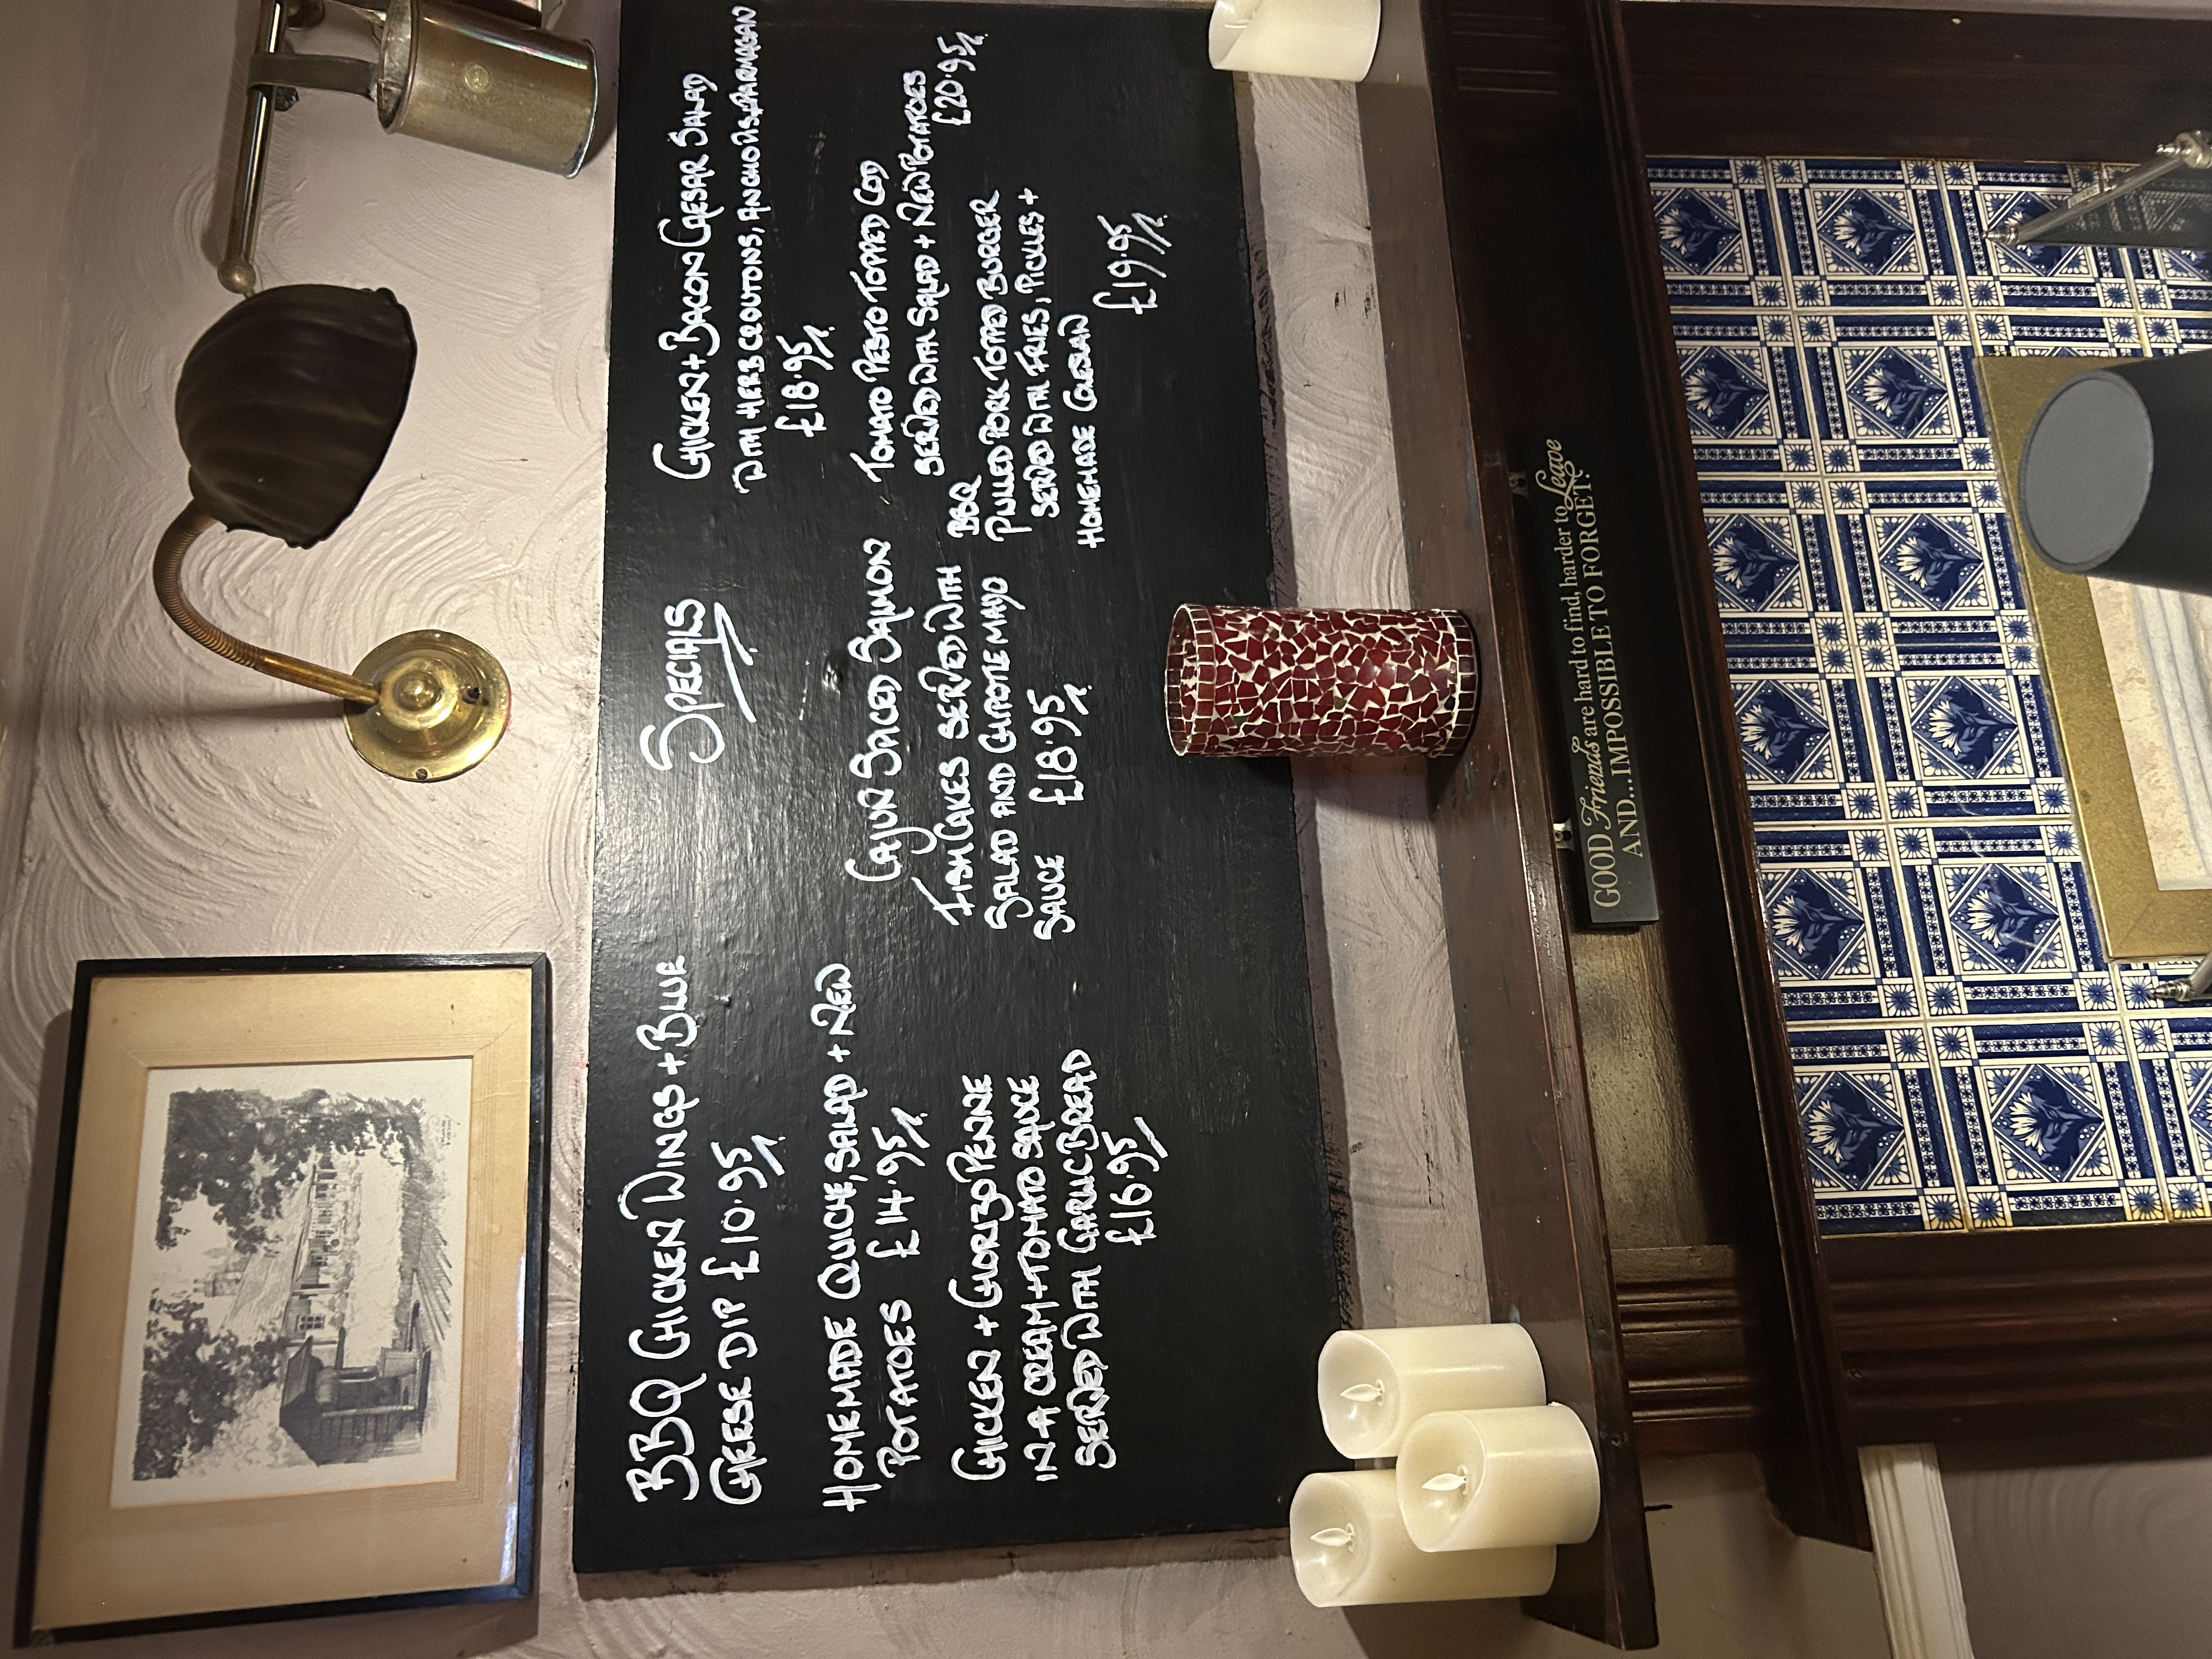 SPECIALS
BBQ CHICKEN WINGS + BLUE
CHEESE DIP £10.95
HOMEMADE QUICHE, SALAD + NEW
POTATOES £14.95
CHICKEN + CHORIZO PENNE
IN A CREAM + TOMATO SAUCE
SERVED WITH GARLIC BREAD
£16.95
CAJUN SPICED SALMON
FISHCAKES SERVED WITH
SALAD AND CHIPOTLE MAYO
SAUCE £18.95
CHICKEN + BACON CAESAR SALAD
WITH HERB CROUTONS, ANCHOVIES, PARMASAN
£18.95
TOMATO PESTO TOPPED COD
SERVED WITH SALAD + NEW POTATOES
£20.95
BBQ
PULLED PORK TOPPED BURGER
SERVED WITH FRIES, PICKLES +
HOMEMADE COLESLAW
£19.95
GOOD Friends are hard to find, harder to Leave
AND....IMPOSSIBLE TO FORGET.